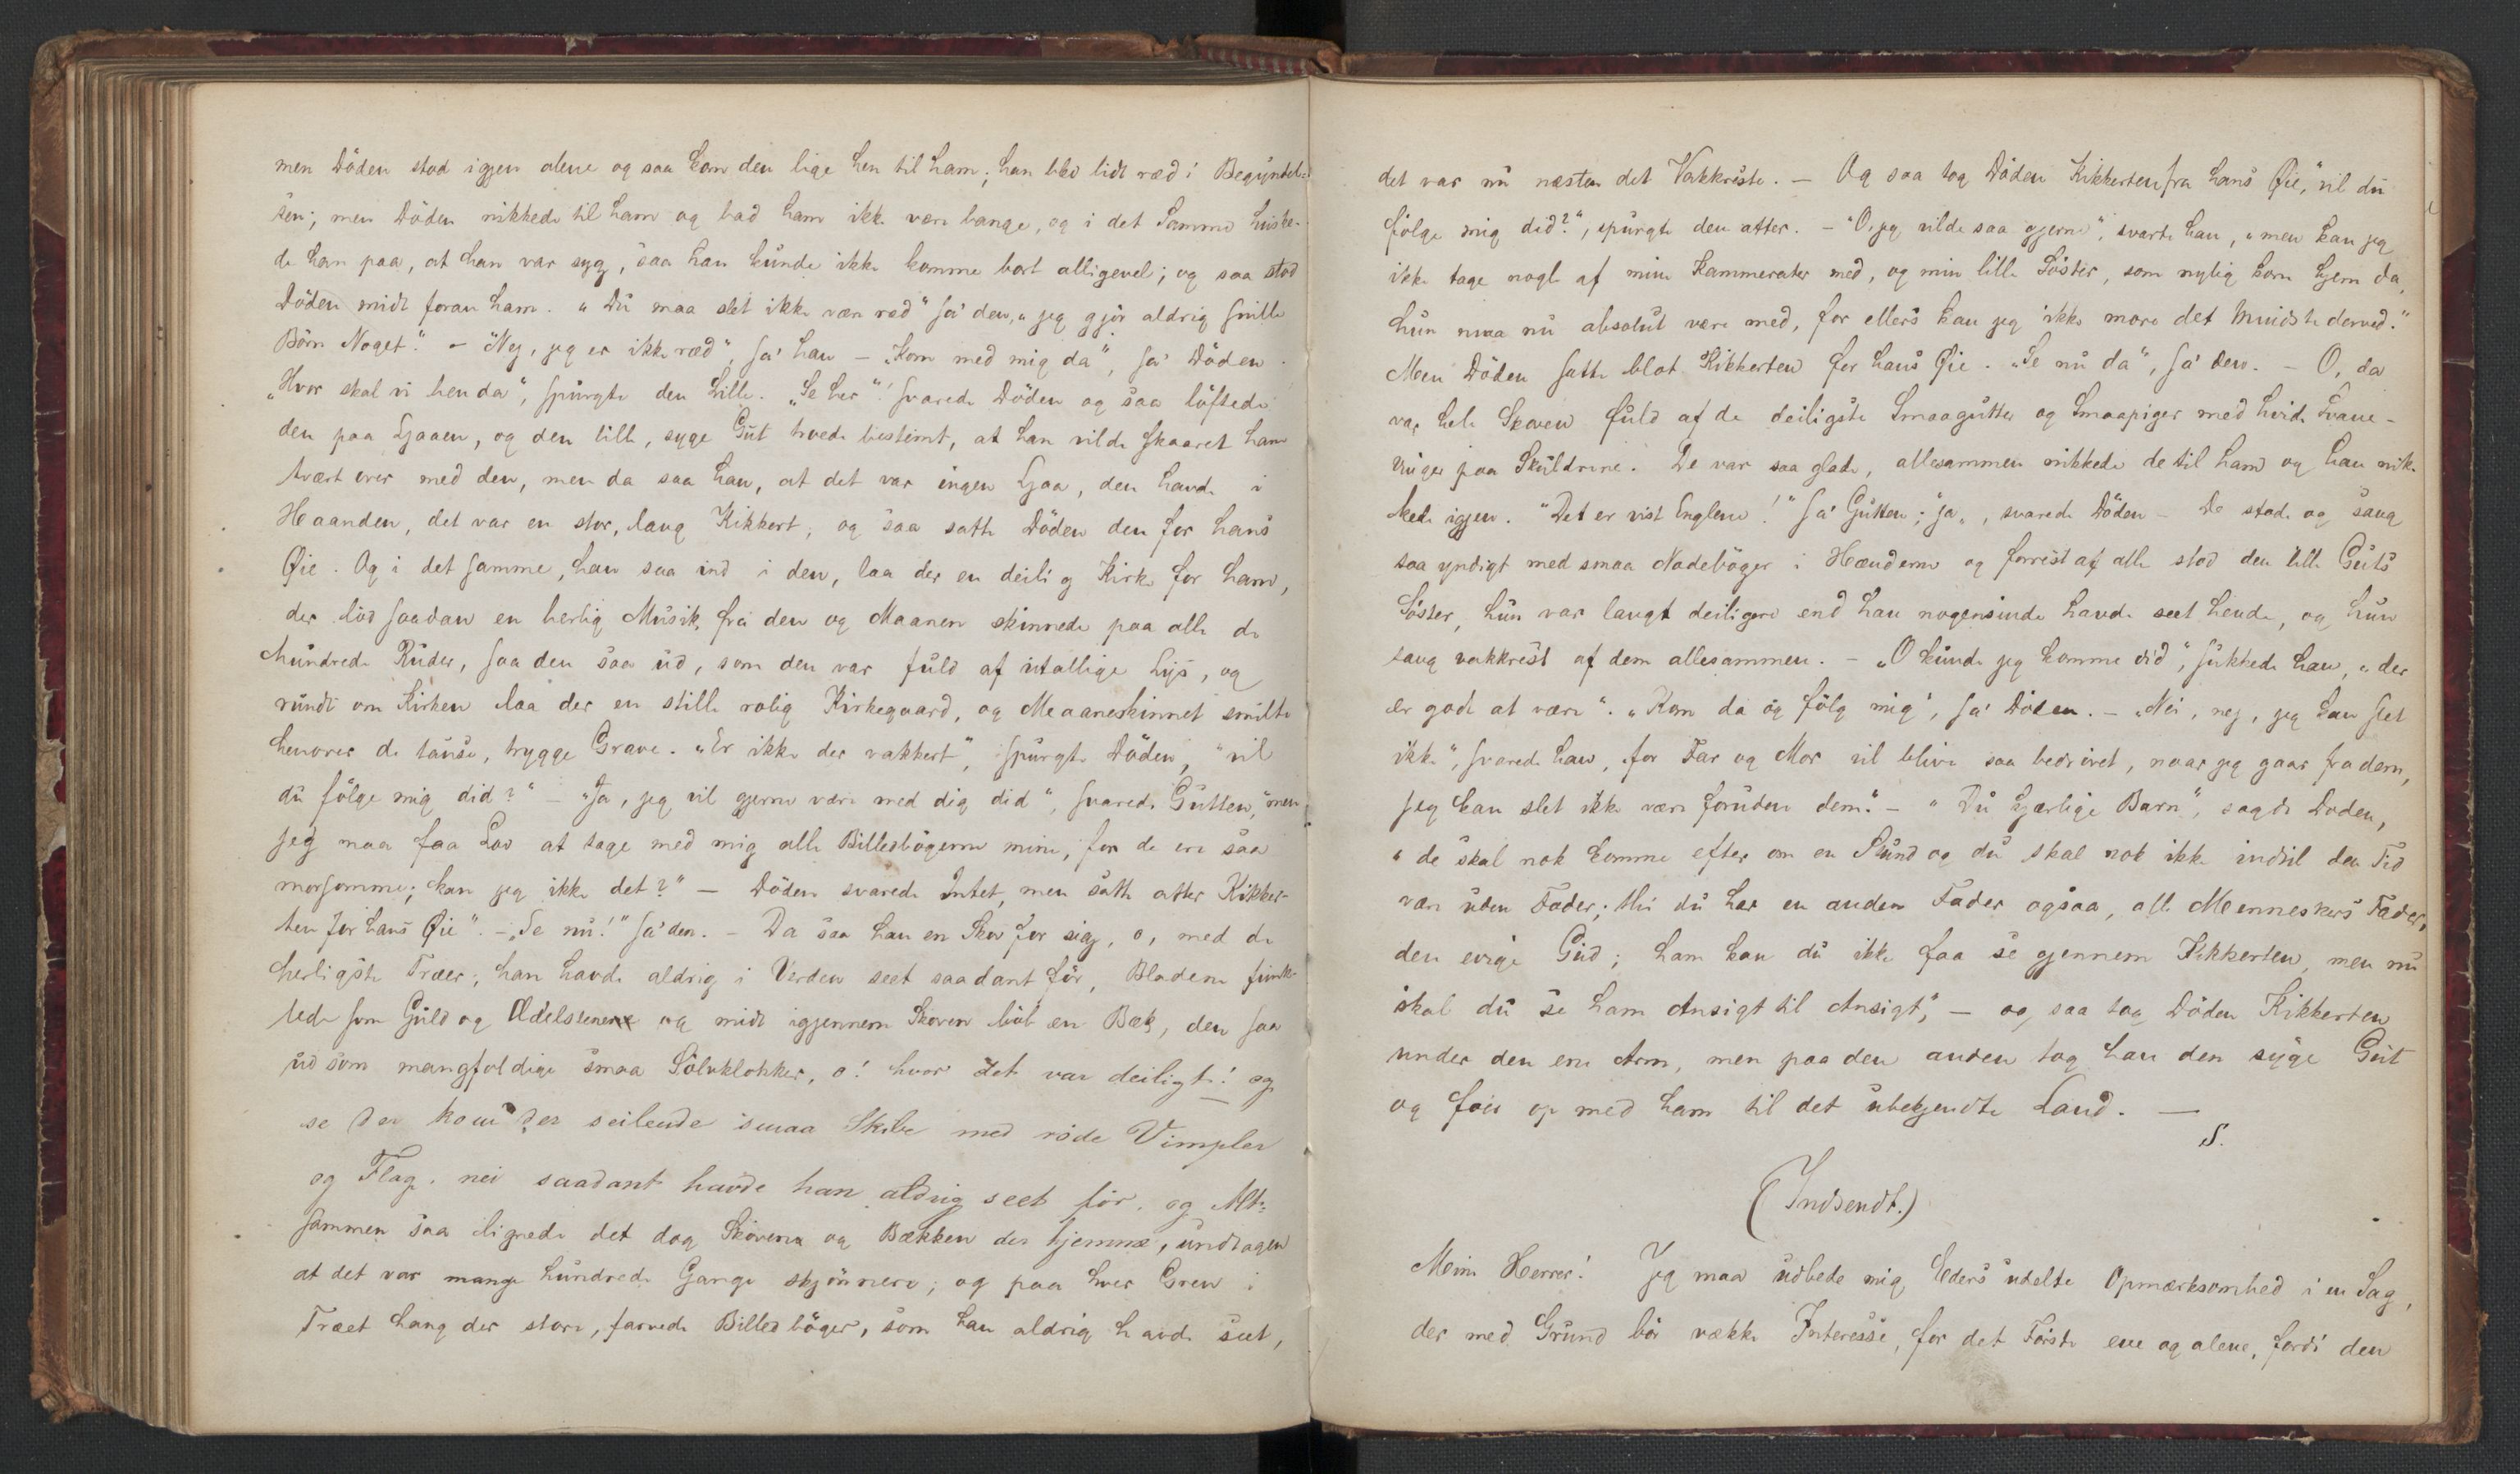 men Döden stod igjen alene og saa kom den lige hen til ham; han blev lidt ræd i Begyndel-
sen; men Döden nikkede til ham og bad ham ikke være bange, og i det Samme huske-
de han paa, at han var syg, saa han kunde ikke komme bort alligevel; og saa stod
Döden midt foran ham. „Du maa slet ikke være ræd“ sa' den, „jeg gjör aldrig snille
Börn Noget.“ – „Nej, jeg er ikke ræd“, sa' han – „Kom med mig da“, sa' Döden.
„Hvor skal vi hen da“, spurgte den Lille. „Se her“! svarede Döden og saa löftede
den paa Ljaaen, og den lille, syge Gut troede bestemt, at han vilde skaaret ham
tvært over med den, men da saa han, at det var ingen Ljaa, den havde i
Haanden, det var en stor, lang Kikkert; og saa satte Döden den for hans
Øie. Og i det samme, han saa ind i den, laa der en deilig Kirke for ham,
der löd saadan en herlig Musik fra den og Maanen skinnede paa alle de
hundrede Ruder, saa den saa ud, som den var fuld af utallige Lys, og
rundt om Kirken laa der en stille rolig Kirkegaard, og Maaneskinnet smilte
henover de tause, trygge Grave. „Er ikke der vakkert“, spurgte Döden, „vil
du fölge mig did?“ – „Ja, jeg vil gjerne være med dig did“, svarede Gutten, „men
jeg maa faa Lov at tage med mig alle Billedbögerne mine, for de ere saa
morsomme; kan jeg ikke det?“ – Döden svarede Intet, men satte atter Kikker-
ten for hans Øie“. – „Se nu!“ sa' den. – Da saa han en Skov for sig, o, med de
herligste Træer; han havde aldrig i Verden seet saadant för, Bladene funk-
lede som Guld og Ædelstene og midt igjennem Skoven löb en Bæk, den saa
ud som mangfoldige smaa Sölvklokker, o! hvor det var deiligt! og
se der kom der seilende smaa Skibe med röde Vimpler
og Flag, nei saadant havde han aldrig seet för, og Alt-
sammen saa lignede det dog Skoven og Bækken der hjemme, undtagen
at det var mange hundrede Gange skjönnere; og paa hver Gren i
Træet hang der store, farvede Billedböger, som han aldrig havde seet,
det var nu næsten det Vakkreste. – Og saa tog Döden Kikkerten fra hans Øie, „vil du
fölge mig did?“, spurgte den atter. – „O, jeg vilde saa gjerne“, svarte han, „men kan jeg
ikke tage nogle af mine Kammerater med, og min lille Söster, som nylig kom hjem da,
hun maa nu absolut være med, for ellers kan jeg ikke more det Mindste derved.“
Men Döden satte blot Kikkerten for hans Øie. „Se nu da“, sa' den. – O, da
var hele Skoven fuld af de deiligste Smaagutter og Smaapiger med hvide Svane-
vinger paa Skuldrene. De var saa glade, allesammen nikkede de til ham og han nik-
kede igjen. „Det er vist Englene!“ sa' Gutten; „ja“, svarede Döden – De stode og sang
saa yndigt med smaa Nodeböger i Hænderne og forrest af alle stod den lille Guts
Söster, hun var langt deiligere end han nogensinde havde seet hende, og hun
sang vakkrest af dem allesammen. – „O kunde jeg komme did“, sukkede han, „der
er godt at være“. „Kom da og fölg mig“, sa' Döden. – „Nei, nej, jeg kan slet
ikke“, svarede han, „for Far og Mor vil blive saa bedrövet, naar jeg gaar fra dem,
jeg kan slet ikke være foruden dem.“ – „Du kjærlige Barn“, sagde Döden,
„de skal nok komme efter om en Stund og du skal nok ikke indtil den Tid
være uden Fader; thi du har en anden Fader ogsaa, alle Menneskers Fader,
den evige Gud; ham kan du ikke faa se gjennem Kikkerten, men nu
skal du se ham Ansigt til Ansigt“, – og saa tog Döden Kikkerten
under den ene Arm, men paa den anden tog han den syge Gut
og foer op med ham til det ubekjendte Land. –
S.
(Indsendt.)
Mine Herrer! Jeg maa udbede mig Eders udelte Opmærksomhed i en Sag,
der med Grund bör vække Interesse, for det Förste ene og alene, fordi den